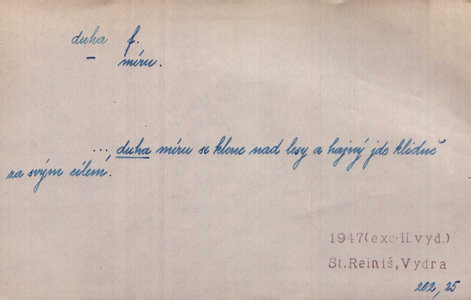 duha f.
míru.
..., duha míru se klene nad lesy a hajný jde klidně
za svým cílem.
1947(exc-II vyd.)
St.Reiniš, Vydra
202, 25